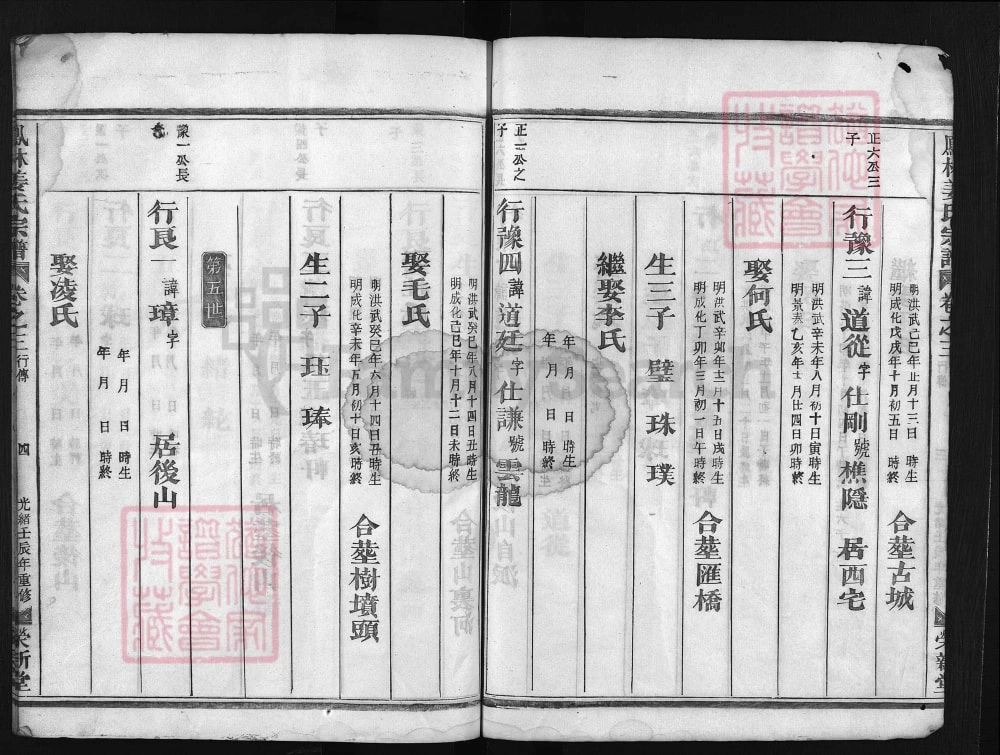 鳳林姜氏宗譜 卷之三 行傳 榮新堂
明洪武己巳年正月十三日 時生
明成化戊戌年十月初五日 時終
合塟古城
正六公三子
行豫三諱道從字仕剛號樵隱 居西宅
明洪武辛未年八月初十日寅時生
明景泰乙亥年七月廿四日卯時終
娶何氏
明洪武辛卯年十一月十五日戌時生
明成化丁卯年三月初一日午時終
合塟匯橋
生三子 璧 珠 璞
繼娶李氏
年 月 日 時生
年 月 日 時終
正一公之子
行豫四諱道廷字仕謙號雲龍
明洪武癸巳年八月十四日丑時生
明成化己巳年十月十二日未時終
娶毛氏
明洪武癸巳年六月十四日丑時生
明成化辛未年五月初十日亥時終
合塟樹墳頭
生二子 珏 琫
第五世
豫一公長子
行艮一諱璋字 居後山
年 月 日 時生
年 月 日 時終
娶凌氏
鳳林姜氏宗譜 卷之三 行傳 四 光緒壬辰年重修 榮新堂